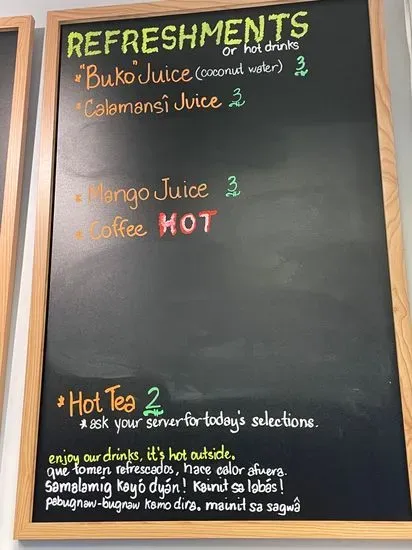 REFRESHMENTS
or hot drinks
* "Buko" Juice (coconut water) 3
* Calamansî Juice 3
* Mango Juice 3
* Coffee HOT
* Hot Tea 2
* ask your server for today's selections.
enjoy our drinks, it's hot outside.
que tomen refrescados, hace calor afuera.
Samalamig kayó dyán! Kainit sa labás!
pabugnaw-bugnaw kamo dira. mainit sa sagwâ